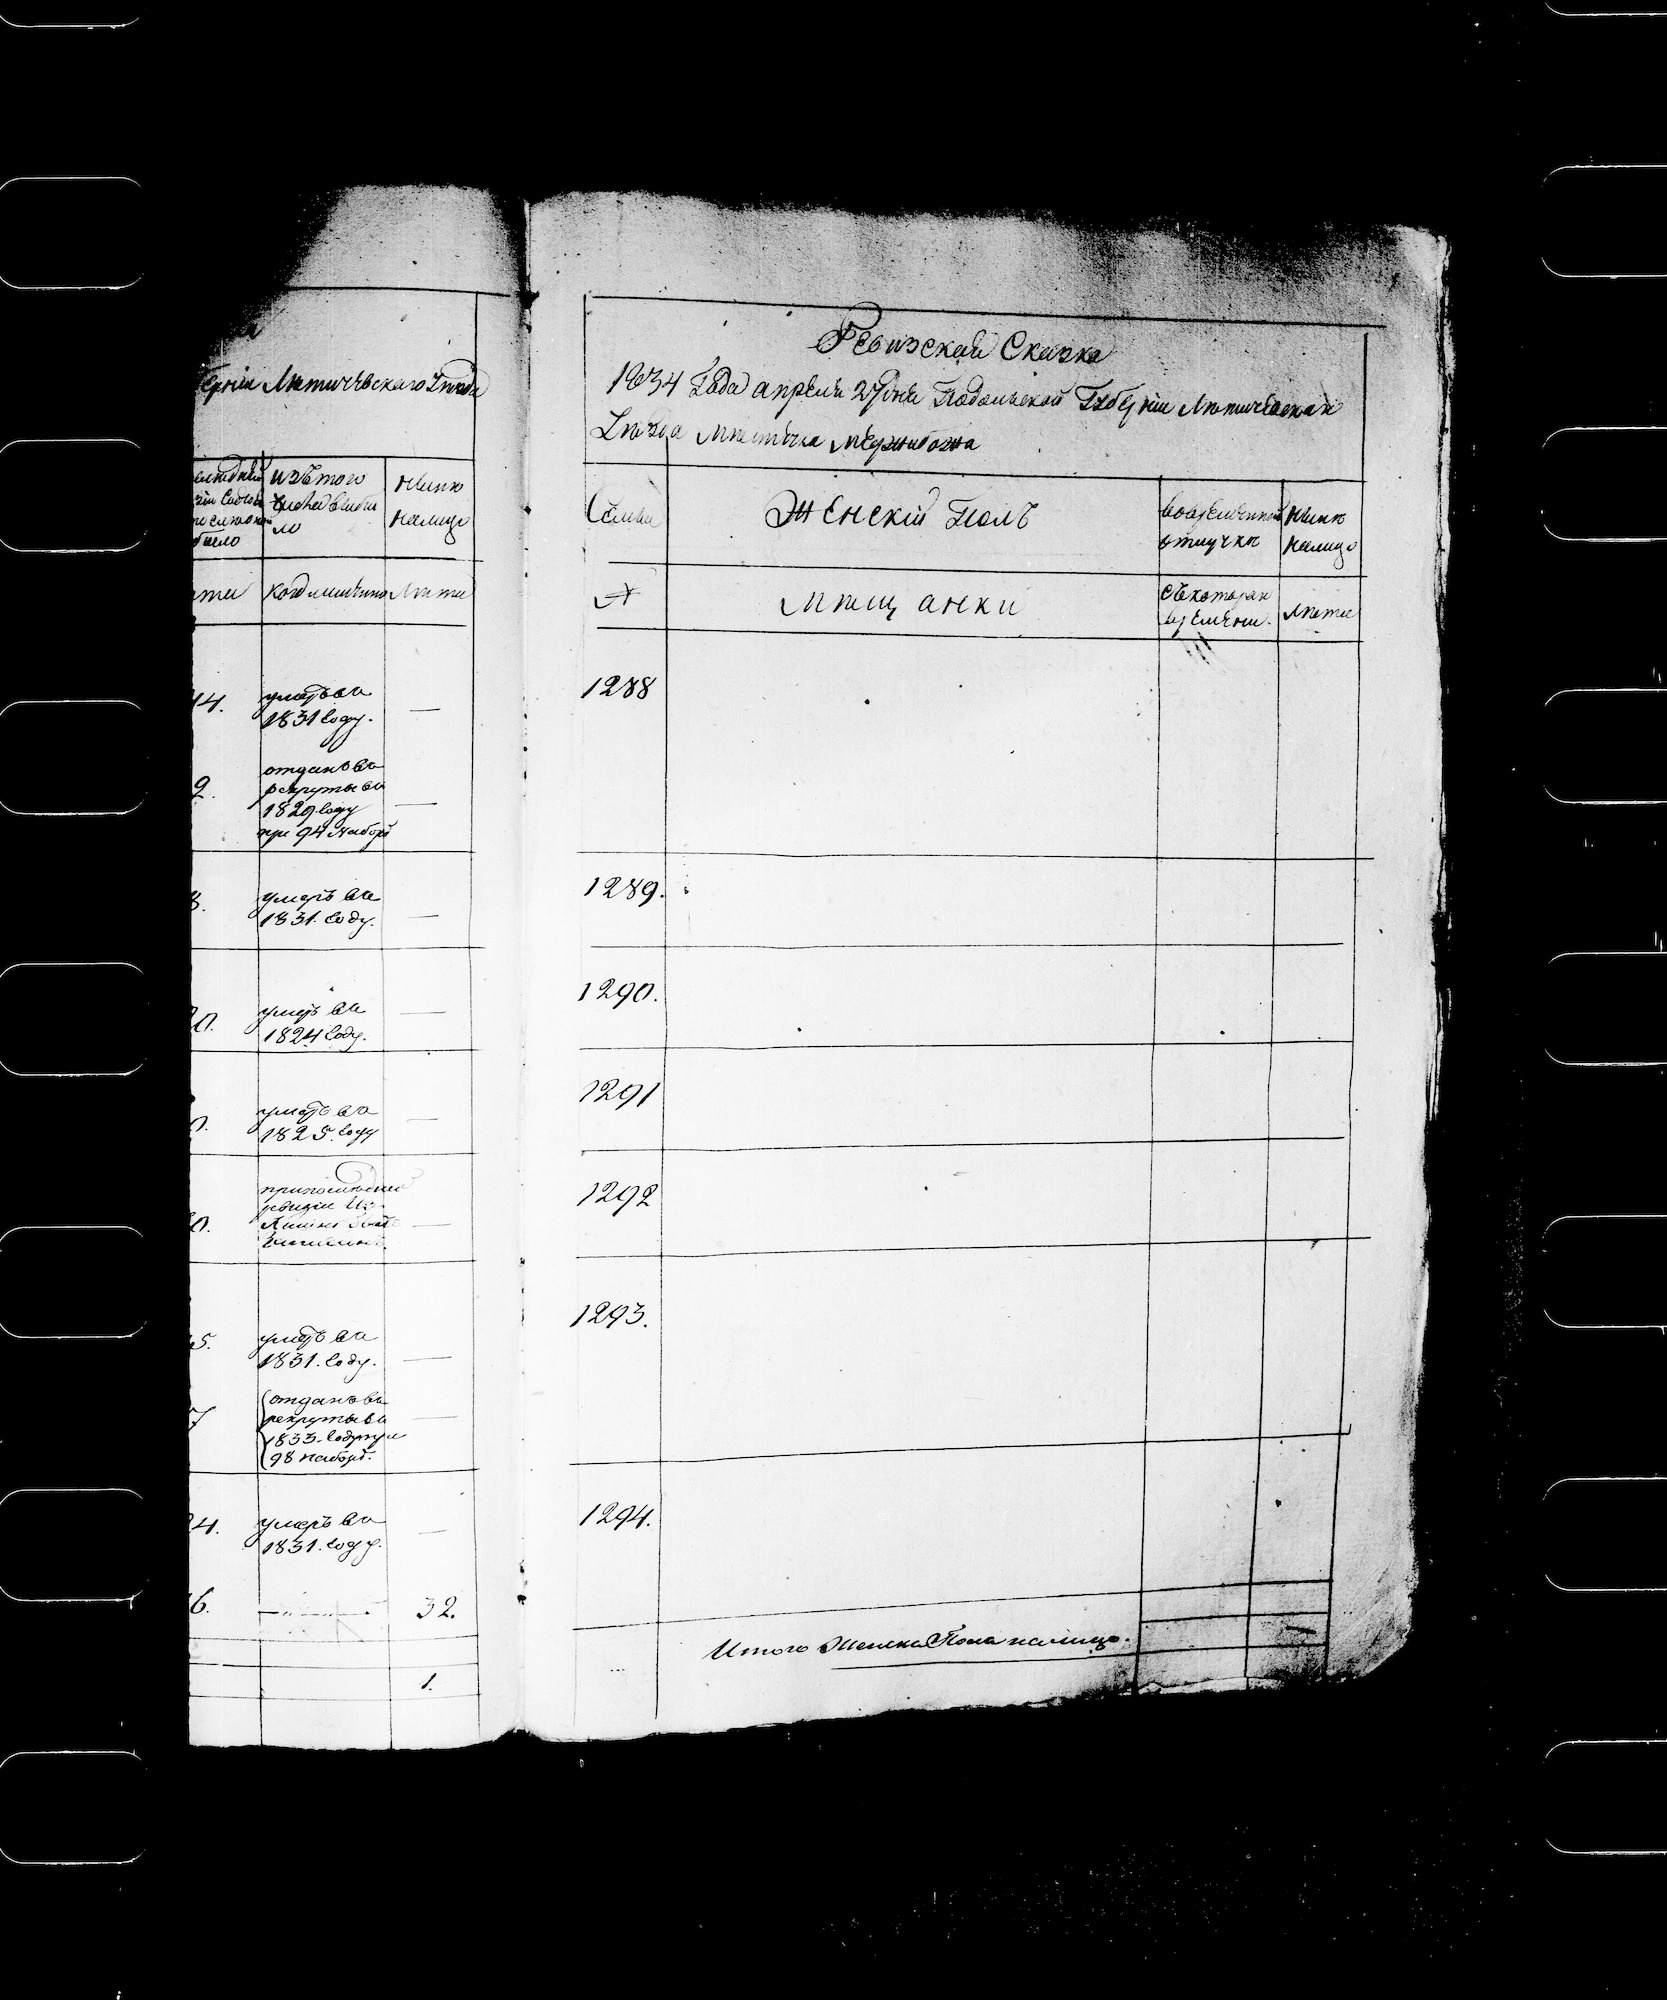 Летичевскаго Уезда
изъ того
числа выбы
ло
ныне
налицо
Когда имянно
Лета
14.
умеръ въ
1831 году.
—
9.
отданъ въ
рекруты въ
1829 году
при 94 наборе
—
8.
умеръ въ
1831. году.
—
умеръ въ
1824 году.
—
умеръ въ
1825. году
—
при последней
ревизии
—
5.
умеръ въ
1831. году.
—
7
отданъ въ
рекруты въ
1833. году при
98 наборе.
—
24.
умеръ въ
1831. году.
—
6.
32.
1.
Ревизская Сказка
1834 Года апреля 27 дня Подольской Губернии Летичевская
Уезда Местечка Межибожа
Семьи
Женскій Полъ
во временной
отлучке
Ныне
налицо
№
Мещанки
съ которая
времени.
Лета
1288
1289.
1290.
1291
1292
1293.
1294.
Итого Женска Пола налицо.